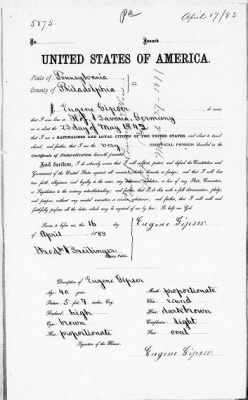 Pa
April 17/83
5875.
No. Issued
UNITED STATES OF AMERICA.
State of Pennsylvania
County of Philadelphia
I Eugene Gipser do swear
that I was born in Hof, Bavaria, Germany
on the 23 day of May 1842
that I am a NATURALIZED AND LOYAL CITIZEN OF THE UNITED STATES, and about to travel
abroad, and further, that I am the very IDENTICAL PERSON described in the
Certificate of Naturalization herewith presented.
And further, I do solemnly swear that I will support, protect, and defend the Constitution and
Government of the United States against all enemies, whether domestic or foreign; and that I will bear
true faith, allegiance, and loyalty to the same, any ordinance, resolution, or law of any State, Convention,
or Legislature to the contrary notwithstanding; and further, that I do this with a full determination, pledge,
and purpose, without any mental reservation or evasion whatsoever; and further, that I will well and
faithfully perform all the duties which may be required of me by law. So help me God.
Sworn to before me, this 16 day
of April 1883
Eugene Gipser
Notary Public.
Description of Eugene Gipser
Age: 40 years
Mouth: proportionate
Stature: 5 feet 7 inches, Eng.
Chin: round
Forehead: high
Hair: dark brown
Eyes: brown
Complexion: light
Nose: proportionate
Face: oval
Signature of the Bearer.
Eugene Gipser